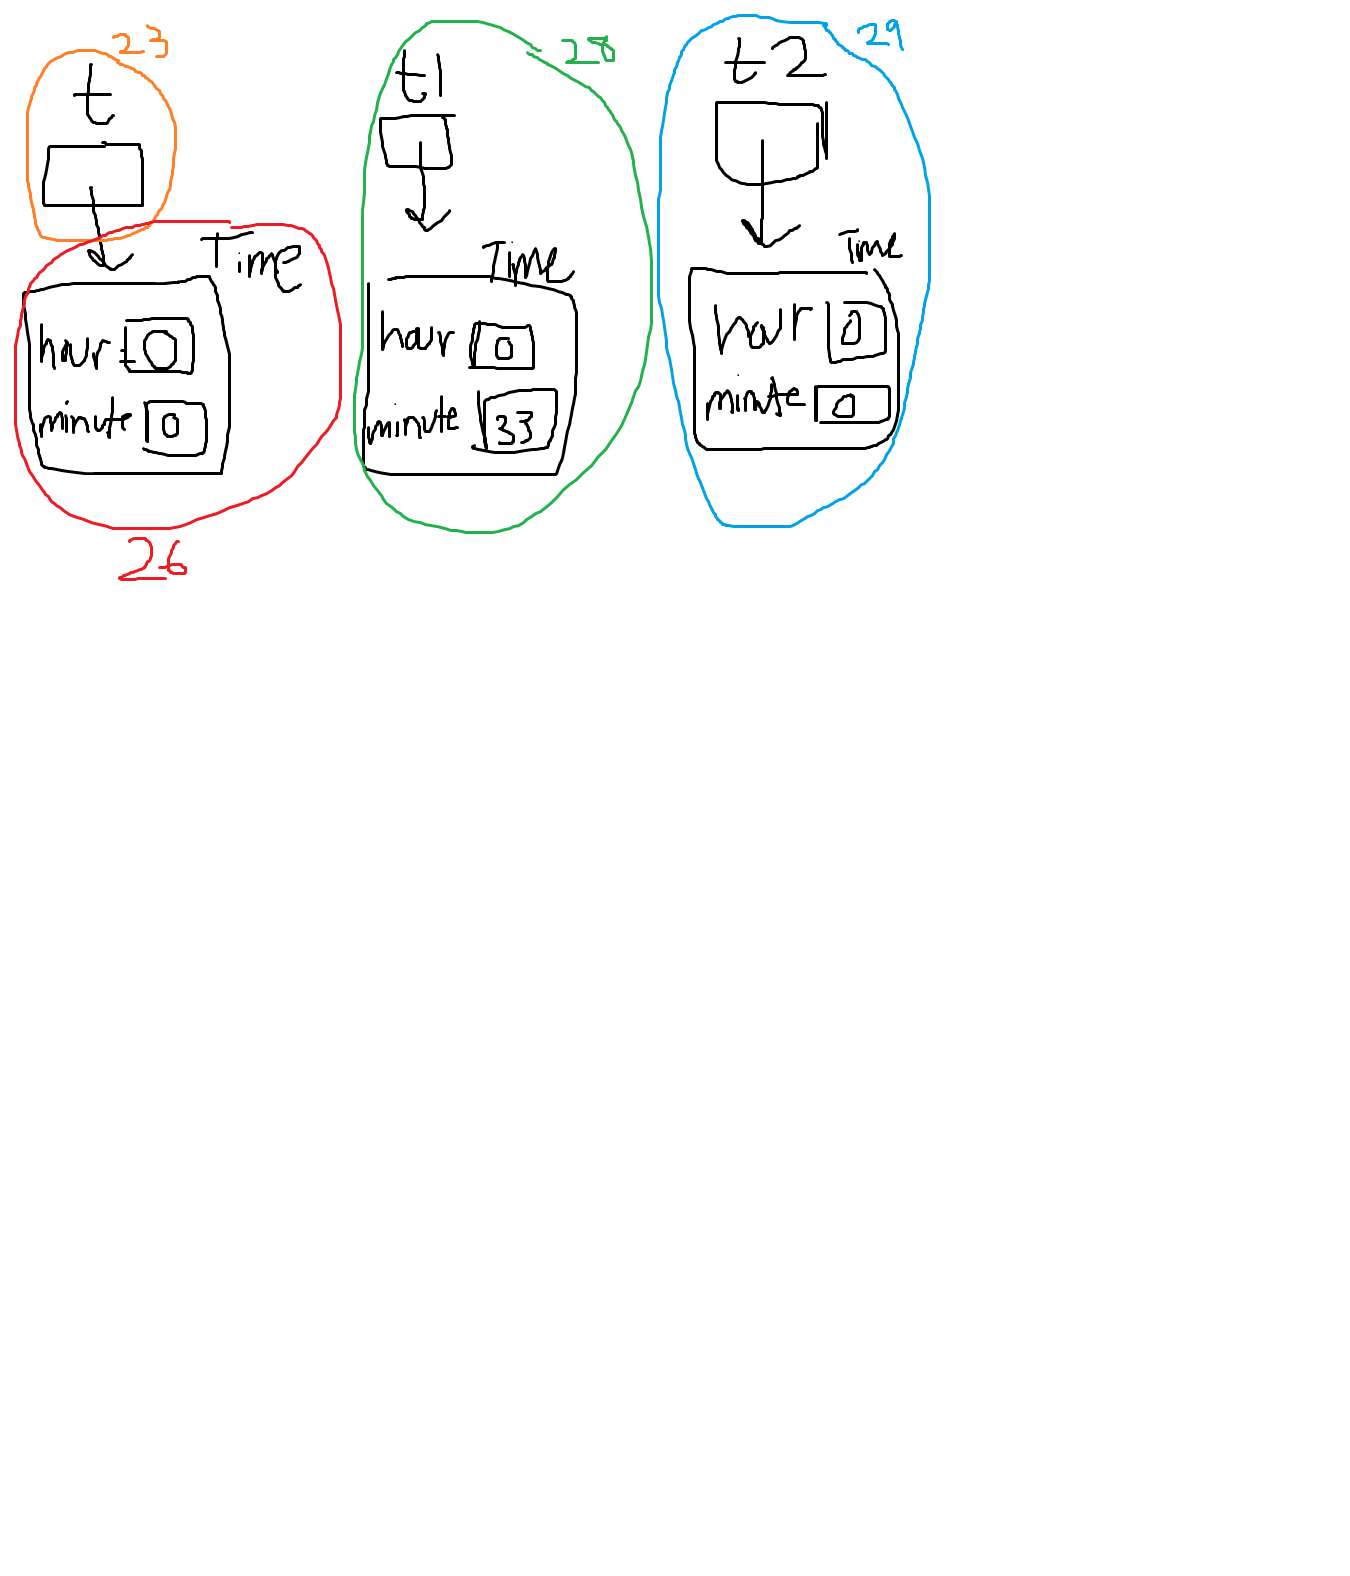 23
t
Time
hour 0
minute 0
26
28
t1
Time
hour 0
minute 33
29
t2
Time
hour 0
minute 0